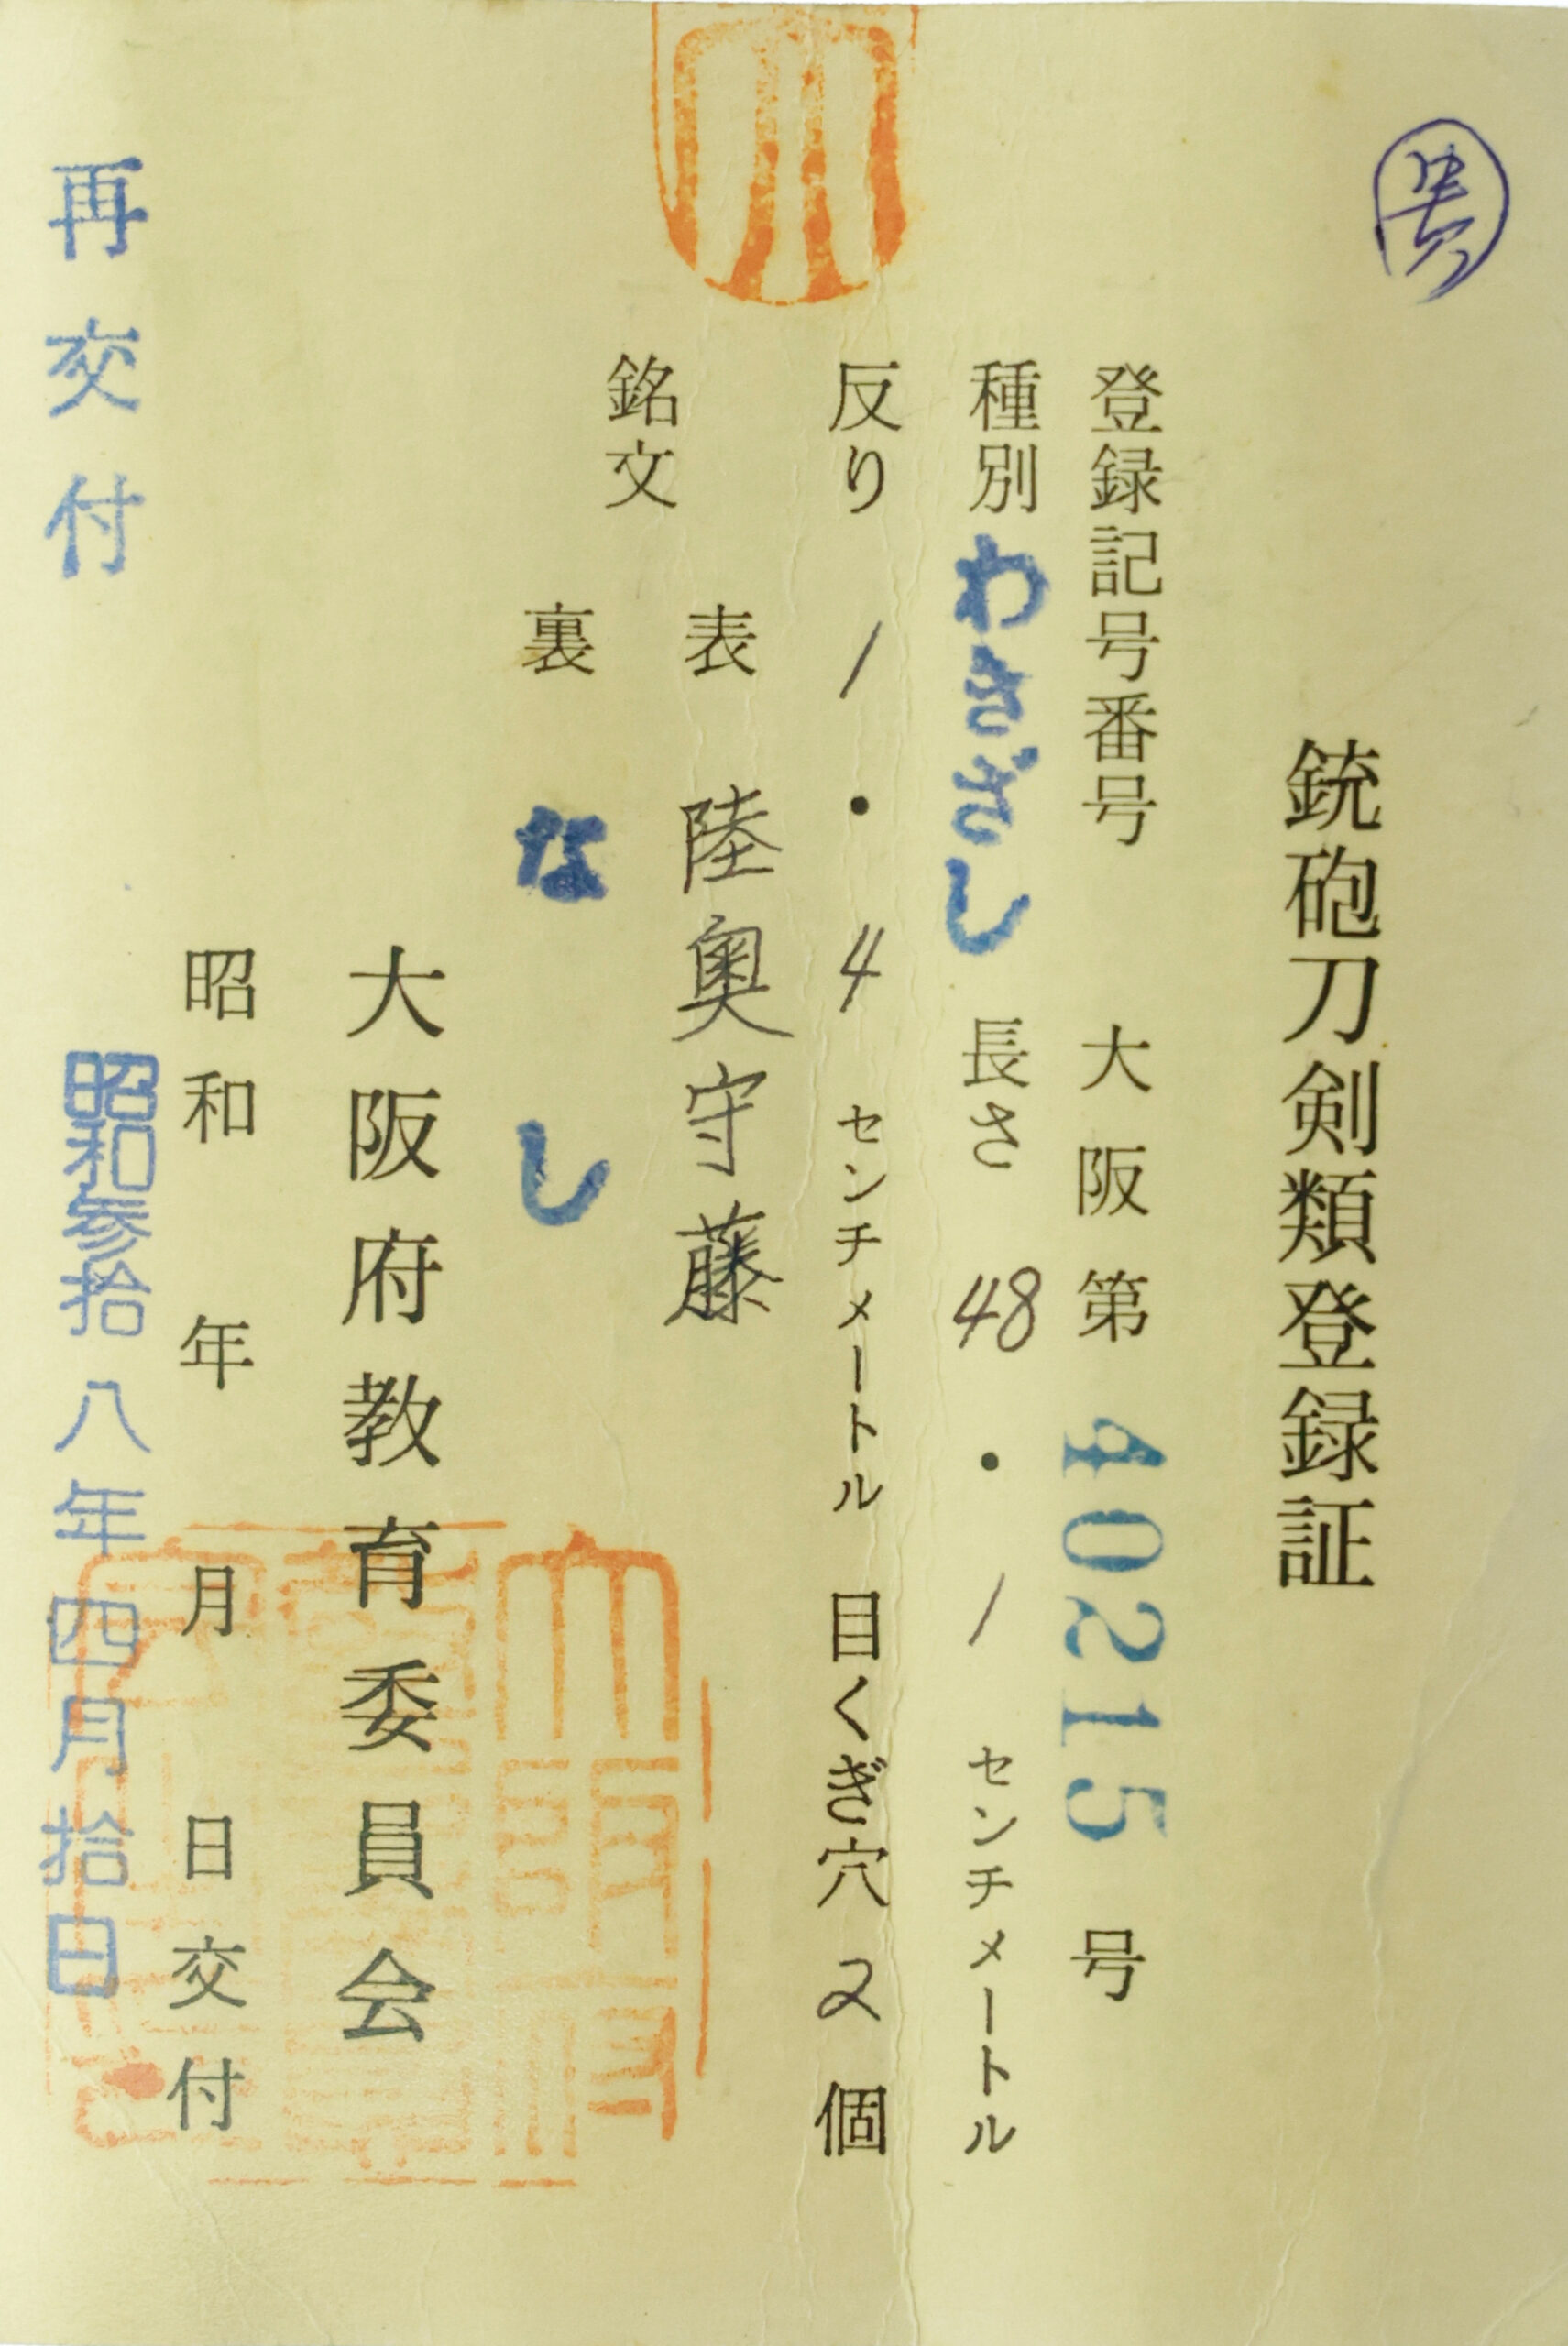 銃砲刀剣類登録証
登録記号番号 大阪第 40215 号
種別 わきざし 長さ 48・1 センチメートル
反り 1・4 センチメートル 目くぎ穴 2 個
銘文
表 陸奥守藤
裏 なし
大阪府教育委員会
昭和 年 月 日交付
再交付 昭和参拾八年四月拾日